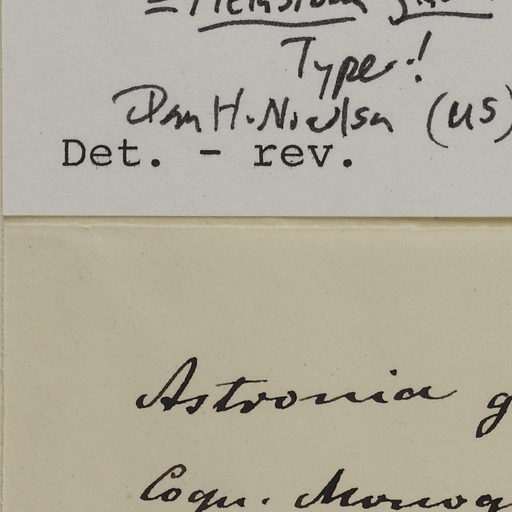 =
Type!
Dan H. Nicolson (US)
Det. - rev.
Astronia g
Cogn. Monog